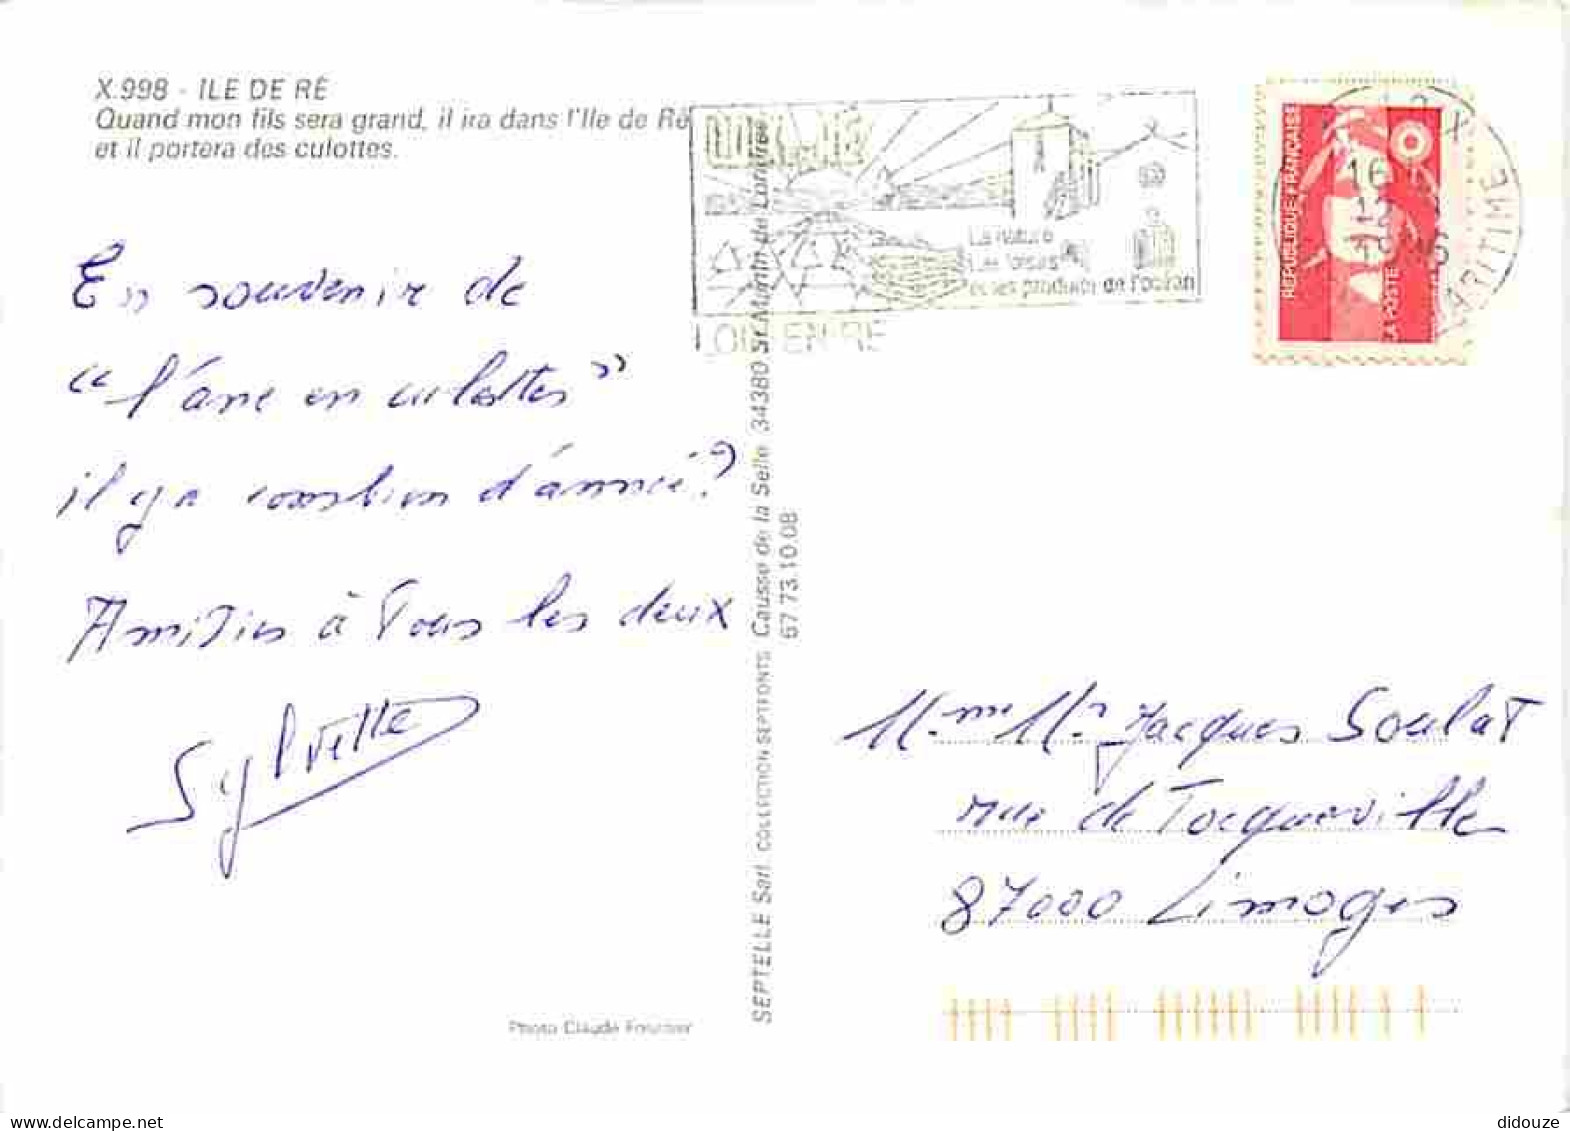 X.998 - ILE DE RÉ
Quand mon fils sera grand, il ira dans l'Ile de Ré
et il portera des culottes.
En souvenir de
"l'ane en culottes"
il y a combien d'année?
Amitiés à Tous les deux
Sylvette
Photo Claude Fournier
SEPTELLE Sarl. COLLECTION SEPTFONTS Causse de la Selle 34380 St Martin de Londres
67 73.10.08
La nature
Les loisirs
et les produits de l'océan
LOIX-EN-RE
16
12
MARITIME
RÉPUBLIQUE FRANÇAISE
LA POSTE
M. me M. r Jacques Soulat
rue de Tocqueville
87000 Limoges
didouze